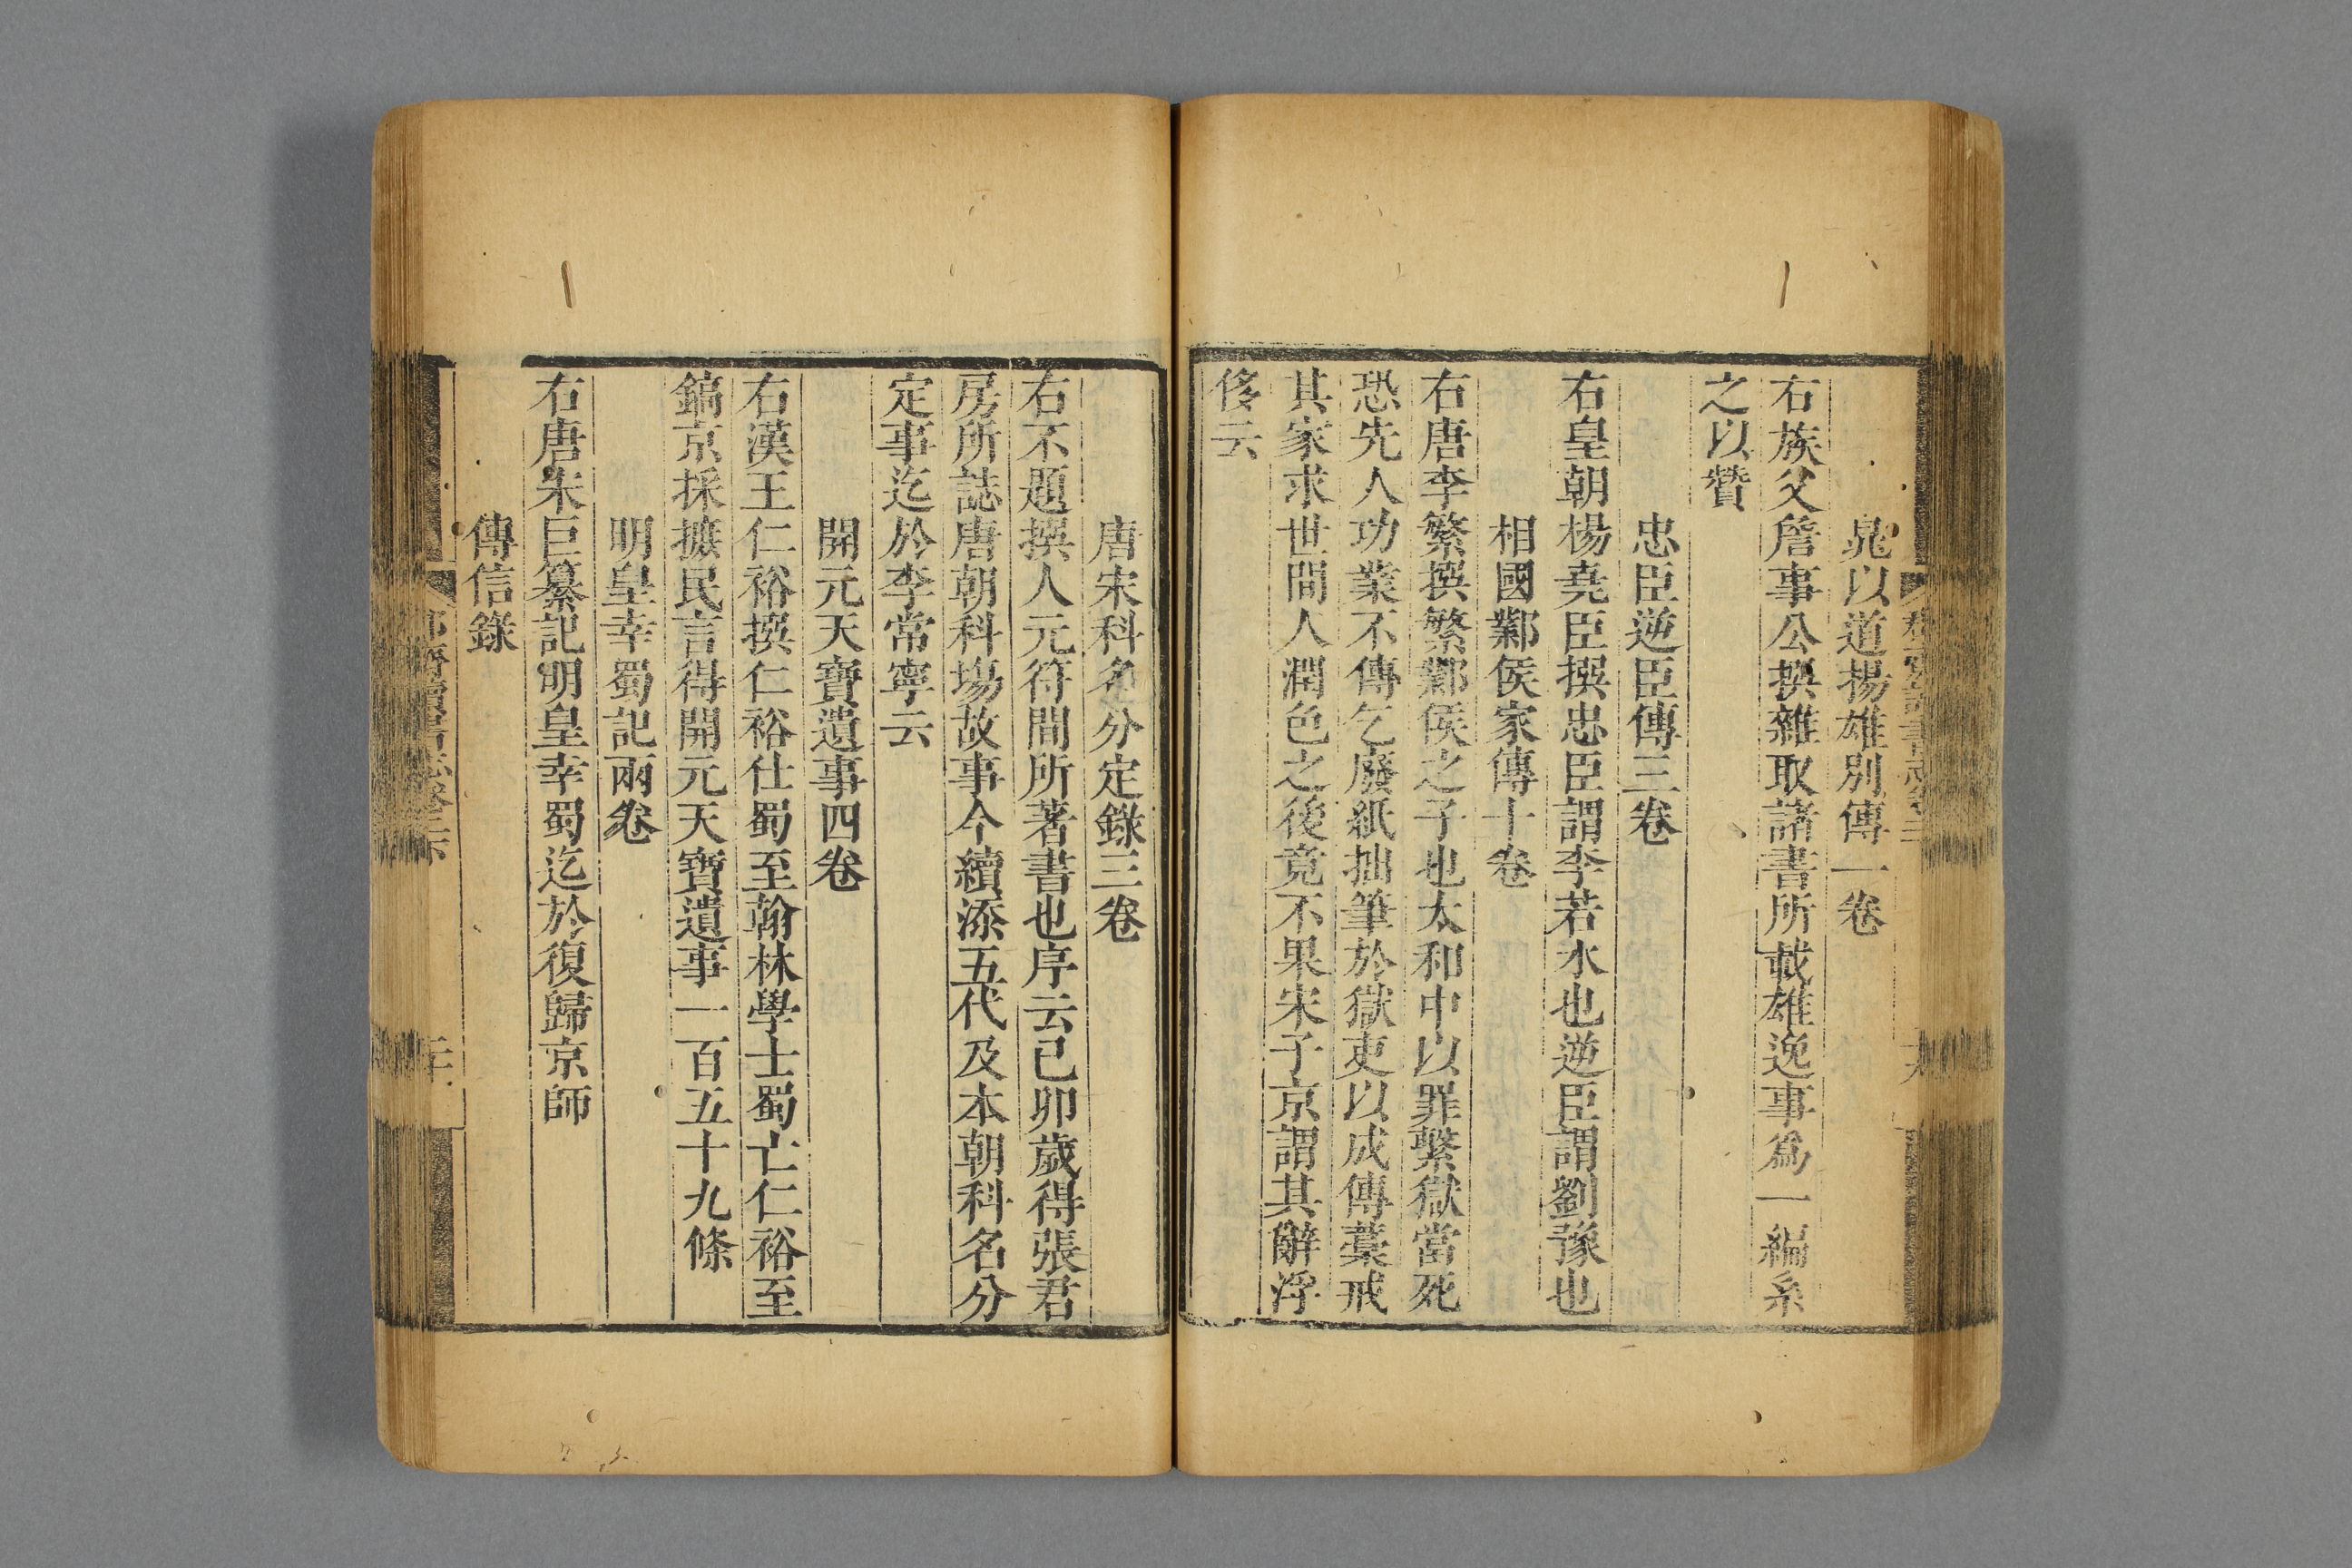 晁以道揚雄別傳一卷
右族父詹事公撰雜取諸書所載雄逸事爲一編系
之以贊
忠臣逆臣傳三卷
右皇朝楊堯臣撰忠臣謂李若水也逆臣謂劉豫也
相國鄴侯家傳十卷
右唐李繁撰繁鄴侯之子也太和中以罪繫獄當死
恐先人功業不傳乞廢紙拙筆於獄吏以成傳藁戒
其家求世間人潤色之後竟不果宋子京謂其辭浮
侈云
唐宋科名分定錄三卷
右不題撰人元符間所著書也序云己卯歲得張君
房所誌唐朝科場故事今續添五代及本朝科名分
定事迄於李常寧云
開元天寶遺事四卷
右漢王仁裕撰仁裕仕蜀至翰林學士蜀亡仁裕至
鎬京採摭民言得開元天寶遺事一百五十九條
明皇幸蜀記兩卷
右唐朱巨纂記明皇幸蜀迄於復歸京師
傳信錄